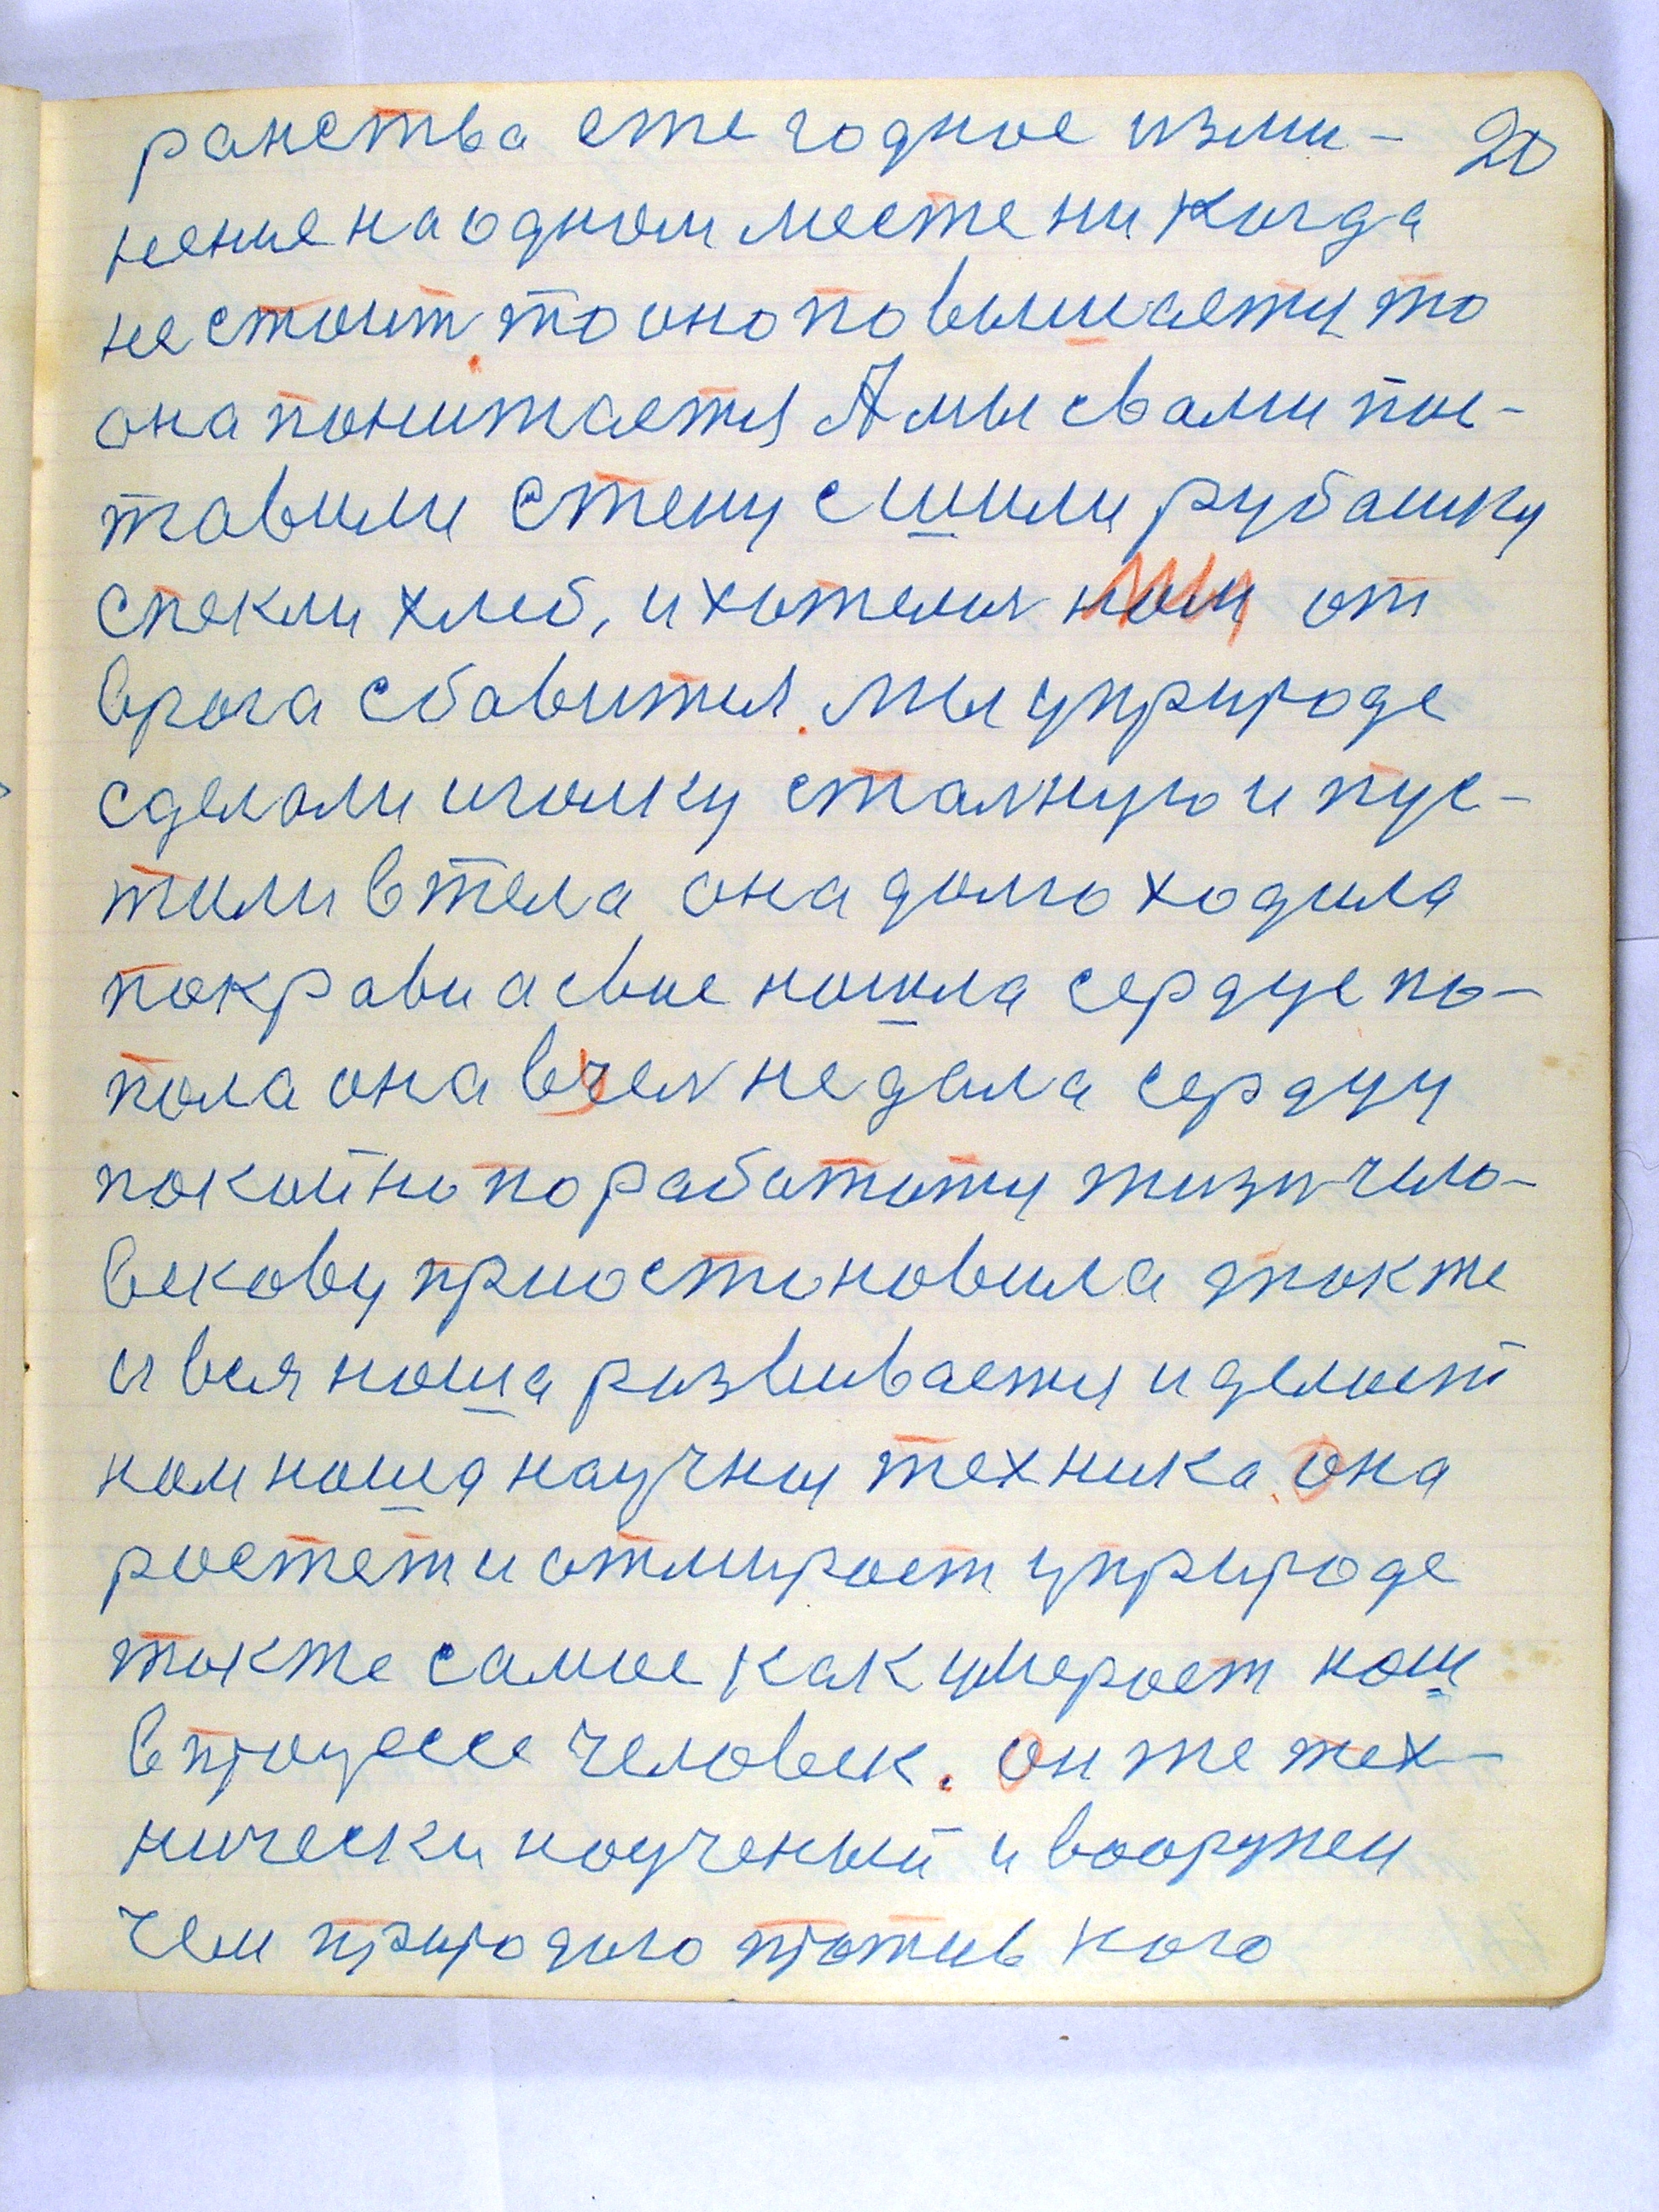 ранства ежегодное изми- 20
нение на одном месте никогда
не стоит. то оно повышаетц то
она понижается А мы свами пос-
тавили стену сшили рубашку
спекли хлеб, и хотели от
врага сбавится. Мы уприроде
сделали иголку сталную и пус-
тили в тела она долго ходила
покрави а свое нашла сердце по-
пола она в чея не дала сердцу
покойно поработать жизнь чило-
векову приостоновила также
и вся наша развиваетця и делоет
ном наша научния техника. Она
ростет и отмироет уприроде
также самое как умероет наш
в процессе человек. Он же тех-
нически научений и вооружен
чем природою против кого